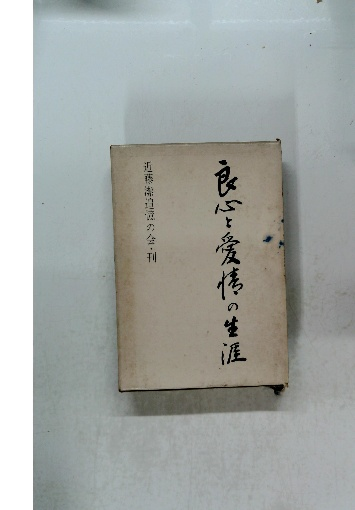 良心と愛情の生涯
近藤 追悼の会・刊